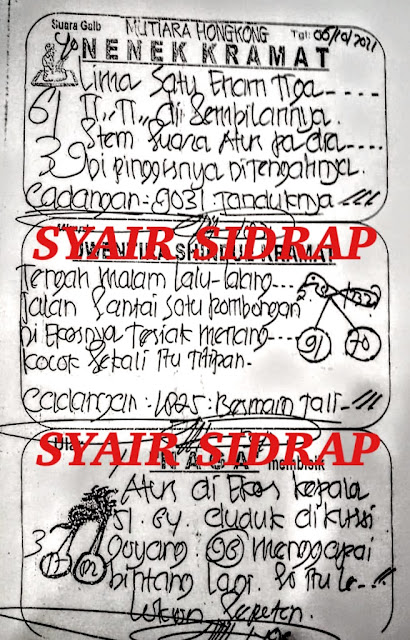 Suara Galb MUTIARA HONGKONG Tgl: 06/10/2021
NENEK KRAMAT
Lima Satu Enam Tiga----
61 TI,, TI,, di Sembilannya.
Stem Suara Atur pada----
39 Di pinggirnya Ditengahnya.
Cadangan: 9031 Tanduknya
SYAIR SIDRAP
KRAMAT
Tengah malam Lalu-lalang---
Jalan Santai Satu Rombongan
Di Ekornya Teriak menang---
91 70
Kocok Sekali Itu Titipan.
Cadangan: 1025: Bermain Tali
SYAIR SIDRAP
NAGA membisik
Atur di Ekor kepala
51. 64. duduk di kursi
3
Goyang 96 menggapai
bintang Lagi. 80 itu